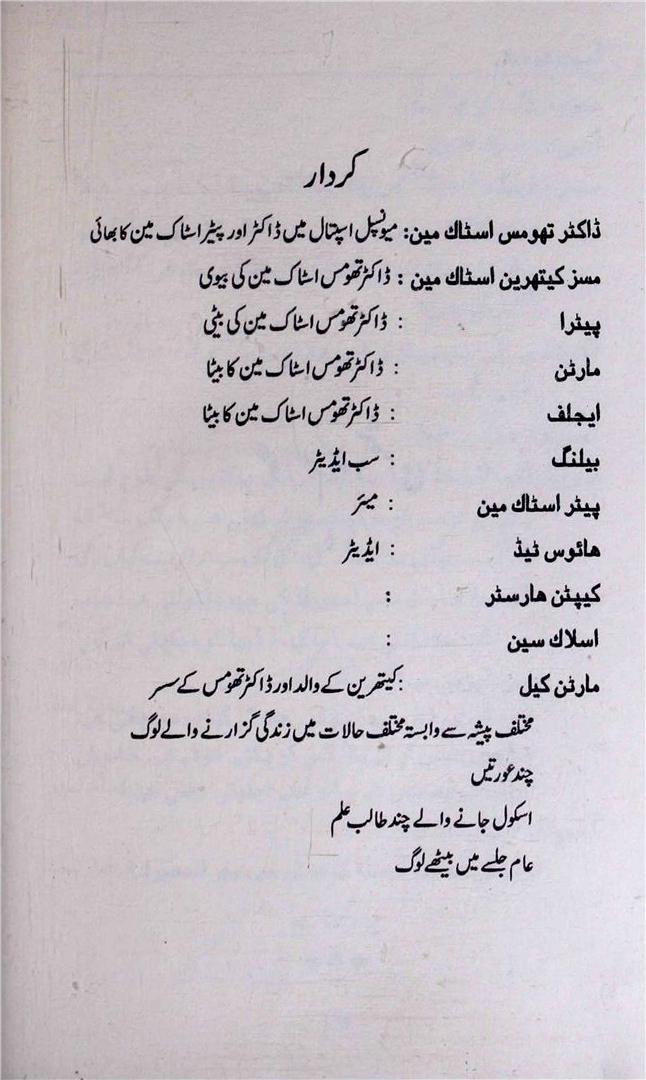 کردار
ڈاکٹر تھومس اسٹاک مین: میونسپل اسپتال میں ڈاکٹر اور پیٹر اسٹاک مین کا بھائی
مسز کیتھرین اسٹاک مین : ڈاکٹر تھومس اسٹاک مین کی بیوی
پیٹرا : ڈاکٹر تھومس اسٹاک مین کی بیٹی
مارٹن : ڈاکٹر تھومس اسٹاک مین کا بیٹا
ایجلف : ڈاکٹر تھومس اسٹاک مین کا بیٹا
بیلنگ : سب ایڈیٹر
پیٹر اسٹاک مین : میئر
ھائوس ٹیڈ : ایڈیٹر
کیپٹن ھارسٹر :
اسلاک سین :
مارٹن کیل :کیتھرین کے والد اور ڈاکٹر تھومس کے سسر
مختلف پیشہ سے وابستہ مختلف حالات میں زندگی گزارنے والے لوگ
چند عورتیں
اسکول جانے والے چند طالب علم
عام جلسے میں بیٹھے لوگ